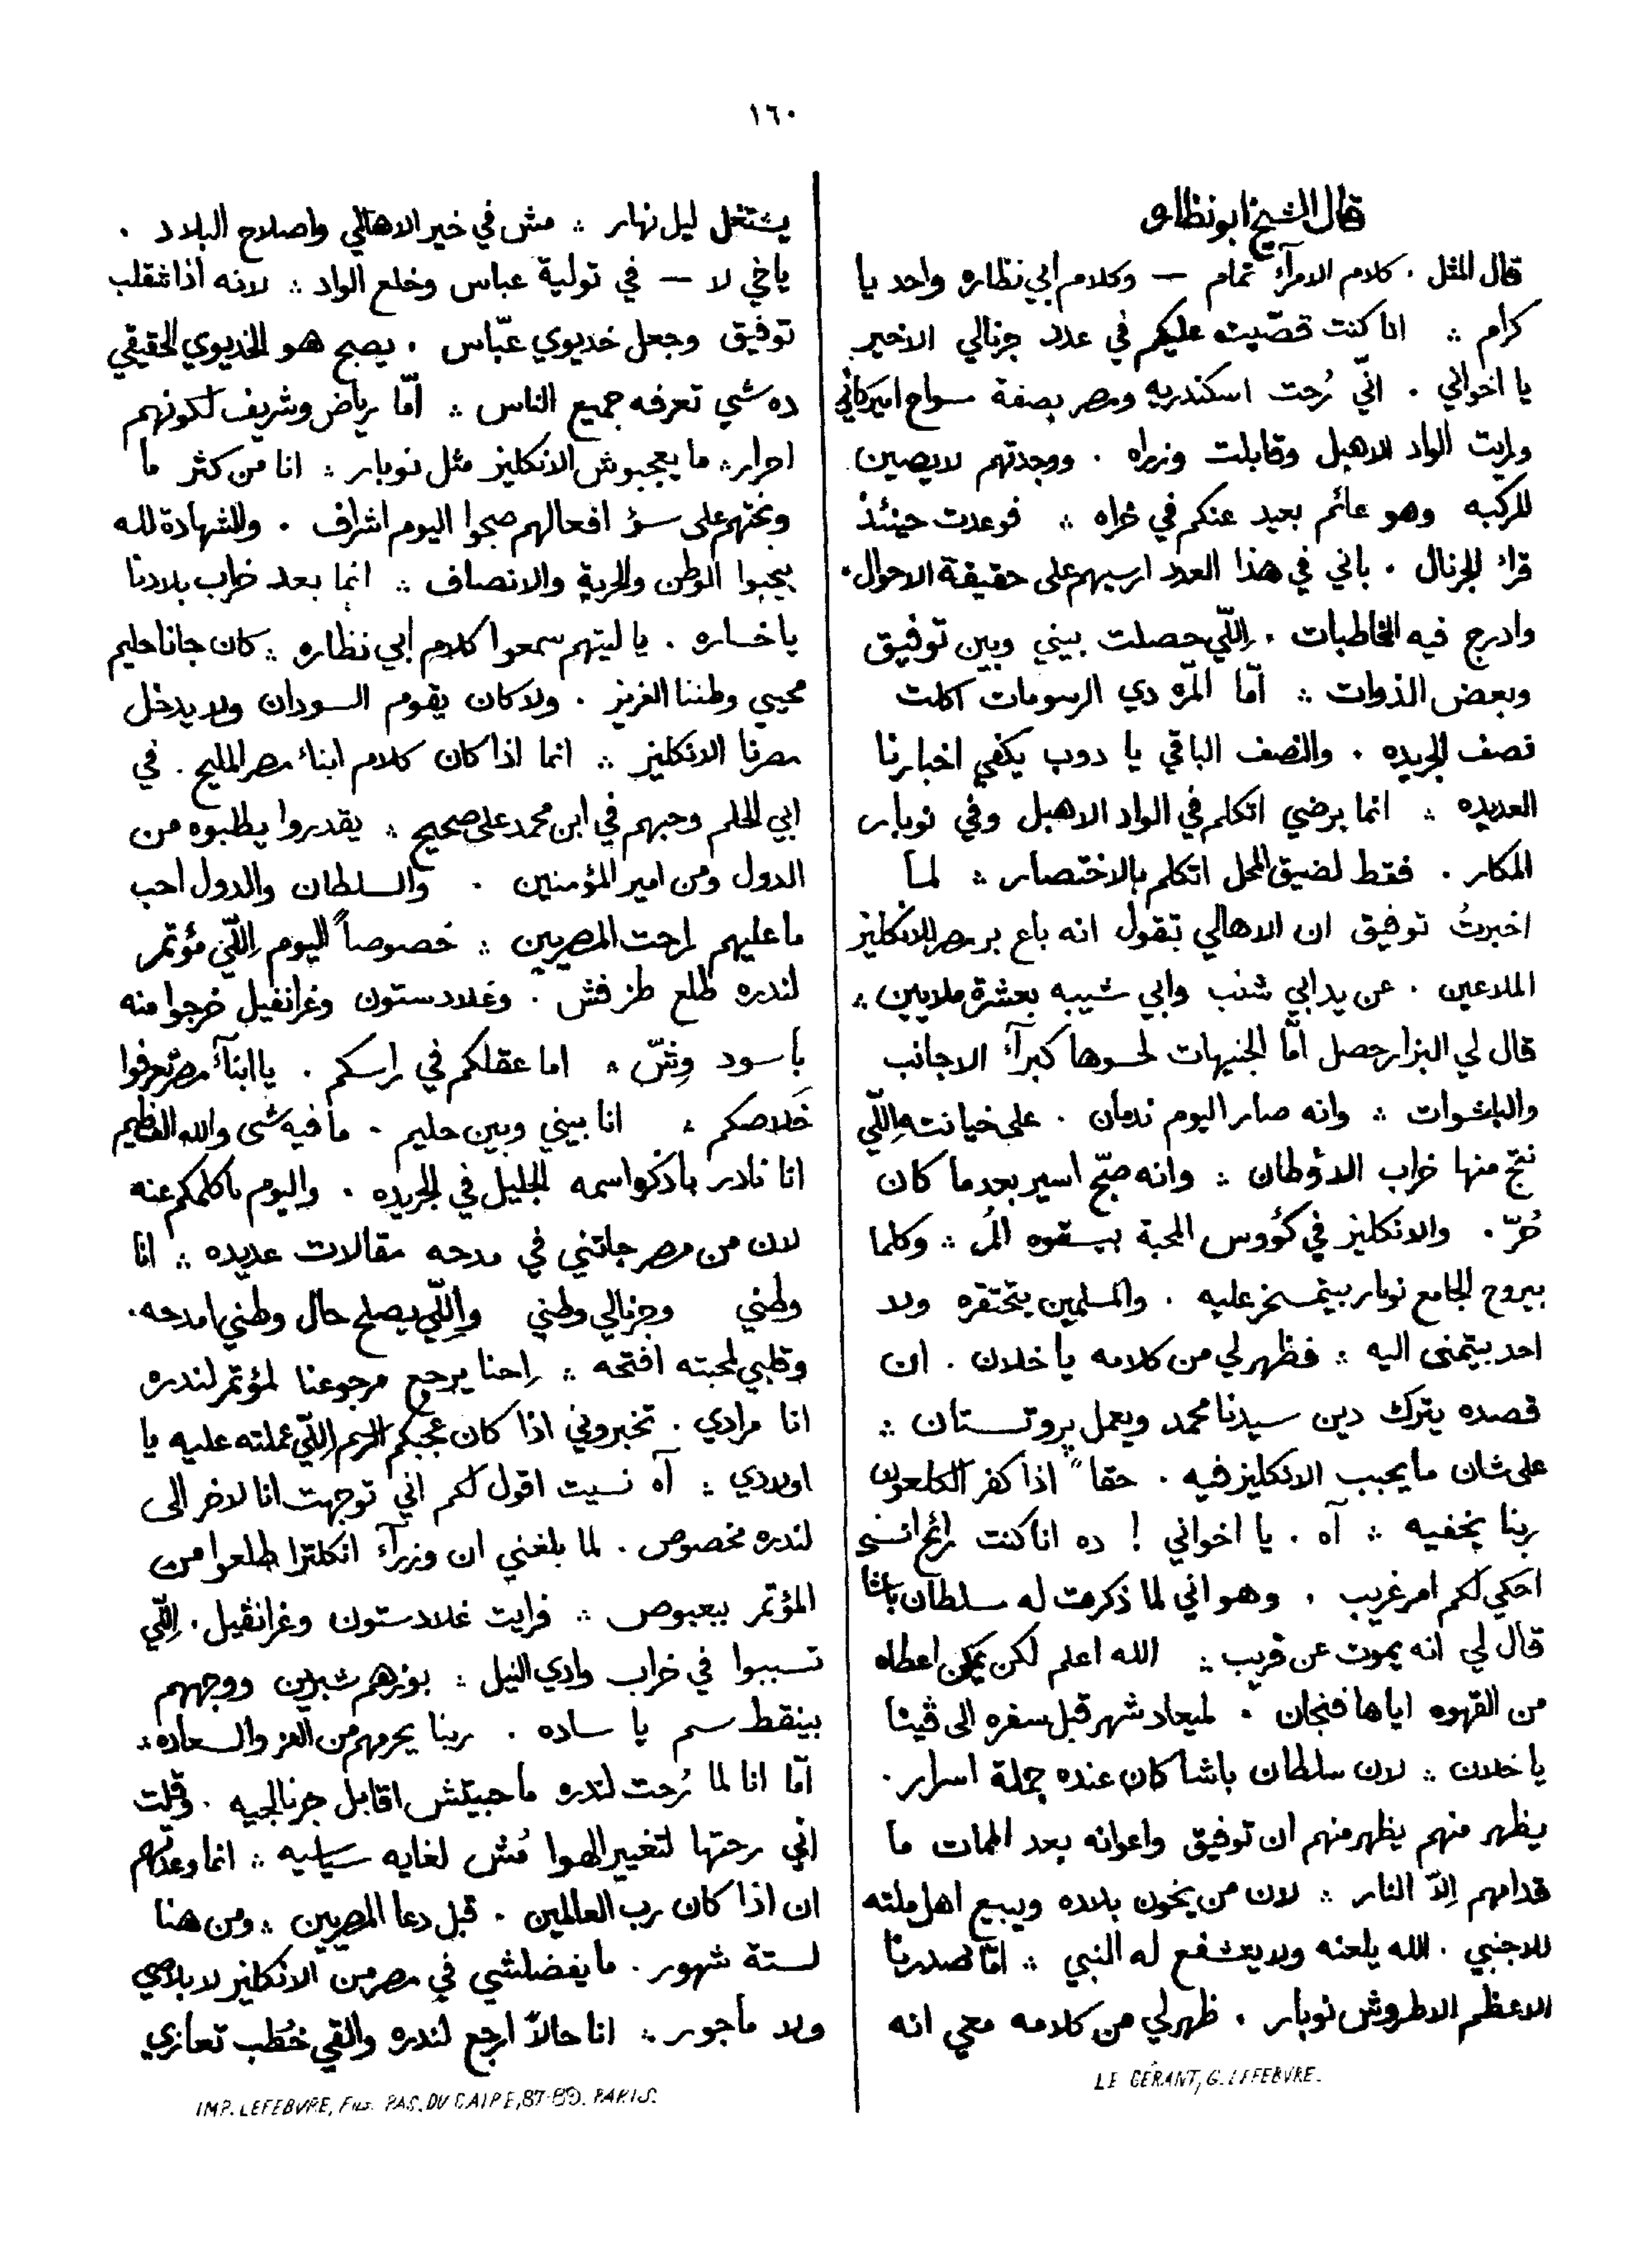 ١٦٠
قال الشيخ ابو نظاره
قال المثل . كلام الامرآء تمام — وكلام ابي نظاره واحد يا
كرام ؞ انا كنت قصّيت عليكم في عدد جرنالي الاخير
يا اخواني . انّي رُحت اسكندريه ومصر بصفة سواح اميركاني
ورايت الواد الاهبل وقابلت وزراه . ووجدتهم لايصين
للركبه وهو عائم بعيد عنكم في خراه ؞ فوعدت حينئذ
قراء الجرنال . باني في هذا العدد ارسيهم على حقيقة الاحوال .
وادرج فيه المخاطبات . اِللّي حصلت بيني وبين توفيق
وبعض الذوات ؞ امّا المّره دي الرسومات اكلت
نصف الجريده . والنصف الباقي يا دوب يكفي اخبارنا
العديده ؞ انما برضي اتكلم في الواد الاهبل وفي نوبار
المكار . فقط لضيق المحل اتكلم بالاختصار ؞ لما
اخبرتُ توفيق ان الاهالي تقول انه باع بر مصر للانكليز
الملاعين . عن يد ابي شنب وابي شيبه بعشرة ملايين ؞
قال لي البزار حصل امّا الجنيهات لحسوها كبرآء الاجانب
والباشوات ؞ وانه صار اليوم ندمان . على خيانته اِللّي
نتج منها خراب الاوطان ؞ وانه صبّح اسير بعد ما كان
حُرّ . والانكليز في كؤوس المحبة بيسقوه المُر ؞ وكلما
بيروح الجامع نوبار بيتمسخر عليه . والمسلمين بتحتقره ولا
احد بيتمنى اليه ؞ فظهر لي من كلامه يا خلان . ان
قصده يترك دين سيدنا محمد ويعمل بروتستان ؞
على شان ما يحبب الانكليز فيه . حقا اذا كفر الكلعون
ربنا يخفيه ؞ آه . يا اخواني ! ده انا كنت رائح انسى
احكي لكم امر غريب . وهو اني لما ذكرت له سلطان باشا
قال لي انه يموت عن قريب ؞ الله اعلم لكن يمكن اعطاه
من القهوه اياها فنجان . لميعاد شهر قبل سفره الى ڤينا
يا خلان ؞ لان سلطان باشا كان عنده جملة اسرار .
يظهر منهم يظهر منهم ان توفيق واعوانه بعد الممات ما
قدامهم اِلاّ النار ؞ لان من يخون بلاده ويبيع اهل ملته
للاجنبي . الله يلعنه ولا يتشفع له النبي ؞ امّا صدرنا
الاعظم الاطروش نوبار . ظهر لي من كلامه معي انه
LE GÉRANT, G. LEFEBVRE.
يشتغل ليل نهار ؞ مش في خير الاهالي واصلاح البلاد .
ياخي لا — في تولية عباس وخلع الواد ؞ لانه اذا انقلب
توفيق وجعل خديوي عبّاس . يصبح هو الخديوي الحقيقي
ده شي تعرفه جميع الناس ؞ امّا رياض وشريف لكونهم
احرار ؞ ما يعجبوش الانكليز مثل نوبار ؞ انا من كثر ما
وبختهم على سؤ افعالهم صبحوا اليوم اشراف . والشهادة لله
يحبوا الوطن والحرية والانصاف ؞ انما بعد خراب بلادنا
يا خساره . يا ليتهم سمعوا كلام ابي نظاره ؞ كان جانا حليم
محيي وطننا العزيز . ولا كان يقوم السودان ولا يدخل
مصرنا الانكليز ؞ انما اذا كان كلام ابناء مصر المليح . في
ابي الحلم وحبهم في ابن محمد علي صحيح ؞ يقدروا يطلبوه من
الدول ومن امير المؤمنين . والسلطان والدول احب
ما عليهم راحت المصريين ؞ خصوصاً اليوم اِللّي مؤتمر
لندره طلع طز فش . وغلادستون وغرانفيل خرجوا منه
باسود وِشّ ؞ اما عقلكم في راسكم . يا ابنآء مصر تعرفوا
خَلاصكم ؞ انا بيني وبين حليم . ما فيه شى والله العظيم
انا نادر باذكر اسمه الجليل في الجريده . واليوم باكلمكم عنه
لان من مصر جاتني في مدحه مقالات عديده ؞ انا
وطني وجرنالي وطني واِللّي يصلح حال وطني امدحه .
وقلبي لمحبته افتحه ؞ اِحنا يرجع مرجوعنا لمؤتمر لندره
انا مرادي . تخبروني اذا كان عجبكم الرسم اِللّي عملته عليه يا
اولادي ؞ آه نسيت اقول لكم اني توجهت انا لاخر الى
لندره مخصوص . لما بلغني ان وزرآء انكلترا طلعوا من
المؤتمر ببعبوص ؞ فرايت غلادستون وغرانڤيل . اِللّي
تسببوا في خراب وادي النيل ؞ بوزهم شبرين ووجههم
بينقط سم يا ساده . ربنا يحرمهم من العز والسعاده ؞
امّا انا لما رُحت لندره ما حبيتش اقابل جرنالجيه . وقلت
اني رحتها لتغيير الهوا مُش لغايه سياسيه ؞ انما وعدتهم
ان اذا كان رب العالمين . قبل دعا المصريين ؞ ومن هنا
لستة شهور . ما يفضلشي في مصر من الانكليز لا بلاصي
ولا مأجور ؞ انا حالاً ارجع لندره والقي خُطب تعازي
IMP. LEFEBVRE, Fils. PAS. DU CAIRE, 87-89. PARIS.